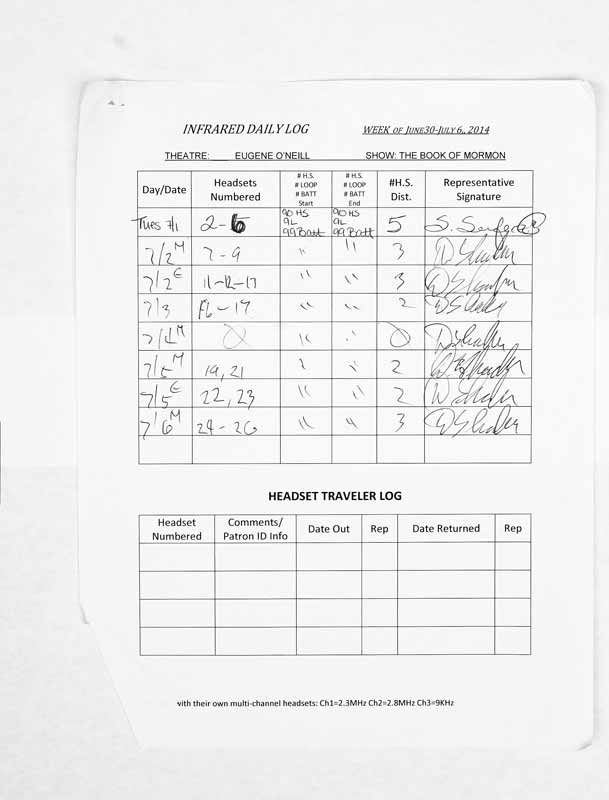 INFRARED DAILY LOG WEEK OF JUNE30-JULY 6, 2014
THEATRE:___ EUGENE O'NEILL SHOW: THE BOOK OF MORMON
Day/Date Headsets Numbered # H.S. # LOOP # BATT Start # H.S. # LOOP # BATT End #H.S. Dist. Representative Signature
Tues 7/1 2-6 90 HS 9L 99 Batt 90 HS 9L 99 Batt 5 S.
7/2 M 7-9 " " 3
7/2 E 11-12-17 " " 3
7/3 -17 " " 2
7/4 M 0 " " 0
7/5 M 19, 21 " 2
7/5 E 22, 23 " " 2
7/6 M 24-26 " " 3
HEADSET TRAVELER LOG
Headset Numbered Comments/ Patron ID Info Date Out Rep Date Returned Rep
with their own multi-channel headsets: Ch1=2.3MHz Ch2=2.8MHz Ch3=9KHz